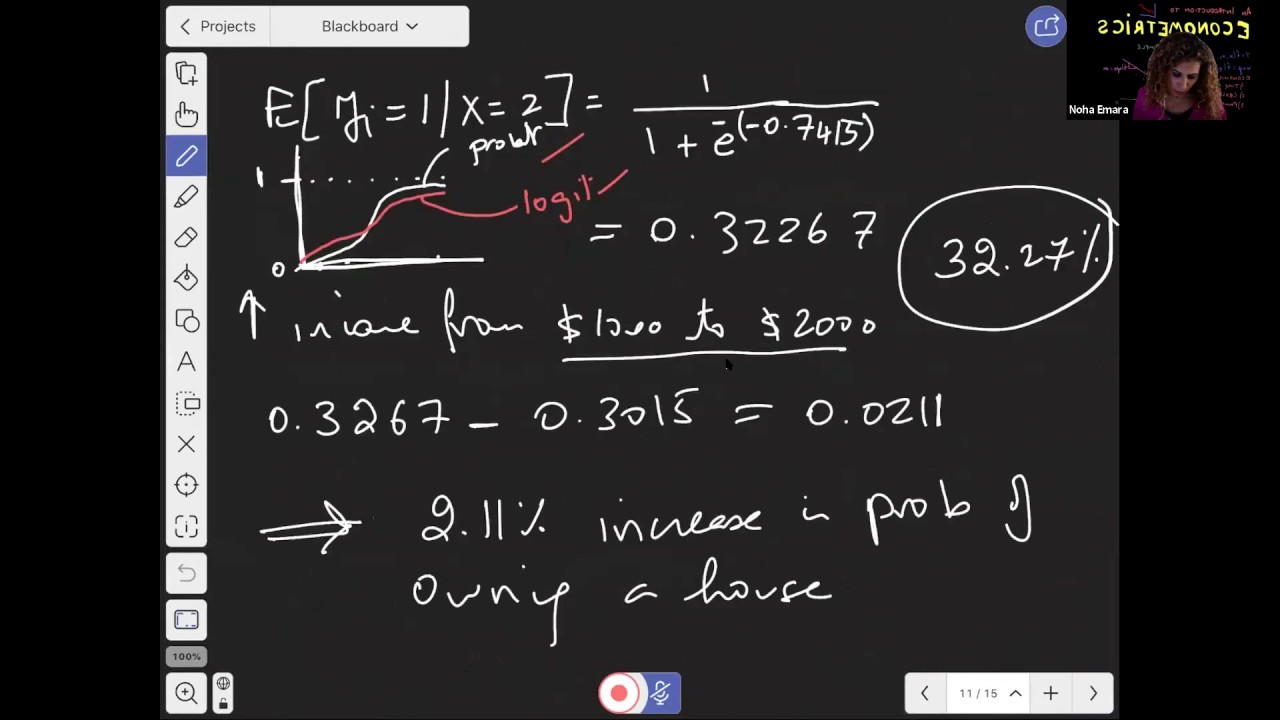 Projects
Blackboard
ECONOMETRICS
Noha Emara
E[ yi = 1 / X = 2 ] = 1 / 1 + e^-(-0.7415)
probit
1
logit
0
= 0.32267
32.27%
↑ income from $1000 to $2000
0.3267 - 0.3015 = 0.0211
⇒ 2.11% increase in prob of
owning a house
100%
11 / 15